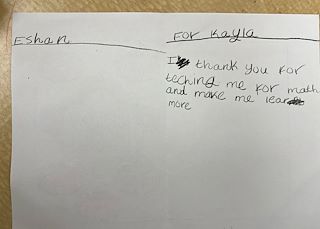 Eshan
For Kayla
I thank you for
teching me for math
and make me lear
more